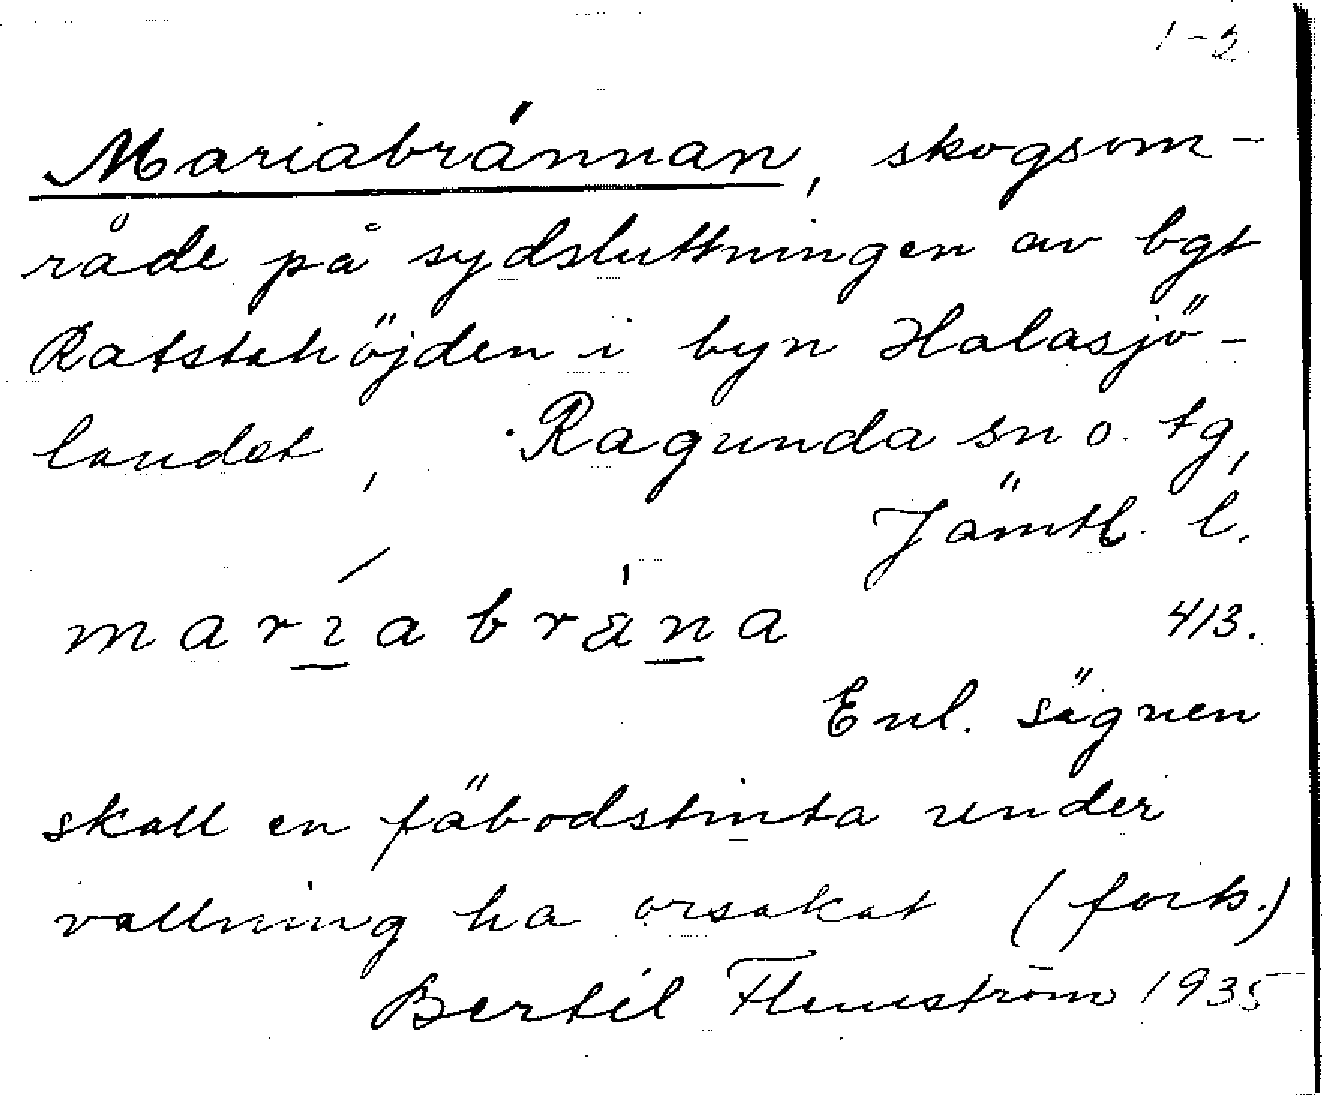 1-2
Mariabrännan, skogsom-
råde på sydsluttningen av bgt
Ratstahöjden i byn Halasjö-
landet, Ragunda sn o. tg,
Jämtl. l.
maríabrä́na 413.
Enl. sägnen
skall en fäbodstinta under
vallning ha orsakat (forts.)
Bertil Flemström 1935